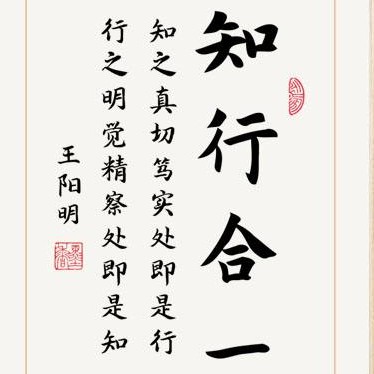 知行合一
知之真切笃实处即是行
行之明觉精察处即是知
王阳明